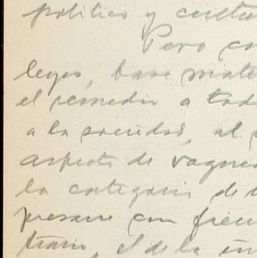 político y cultu
Pero co
leyes, base mate
el remedio a tod
a la sociedad, al
aspecto de vagued
la categoría de
presarse con frecu
traria, el de la in